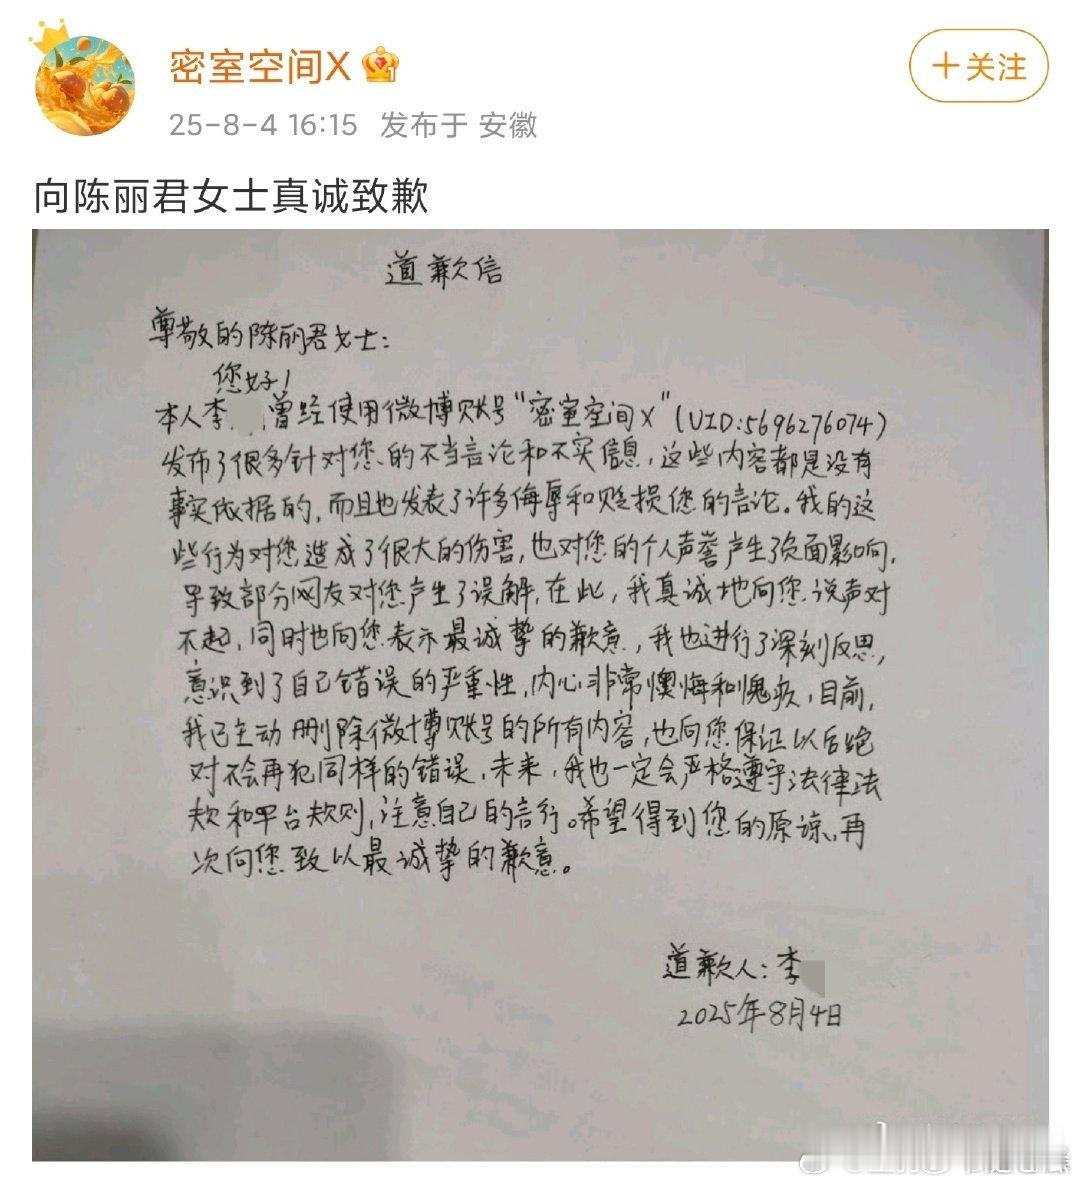 密室空间X
+关注
25-8-4 16:15 发布于 安徽
向陈丽君女士真诚致歉
道歉信
尊敬的陈丽君女士：
您好！
本人李 曾经使用微博账号“密室空间X”(UID:5696276074)
发布了很多针对您的不当言论和不实信息，这些内容都是没有
事实依据的，而且也发表了许多侮辱和贬损您的言论。我的这
些行为对您造成了很大的伤害，也对您的个人声誉产生了负面影响，
导致部分网友对您产生了误解，在此，我真诚地向您说声对
不起，同时也向您表示最诚挚的歉意，我也进行了深刻反思，
意识到了自己错误的严重性，内心非常懊悔和愧疚，目前，
我已主动删除微博账号的所有内容，也向您保证以后绝
对不会再犯同样的错误，未来，我也一定会严格遵守法律法
规和平台规则，注意自己的言行。希望得到您的原谅，再
次向您致以最诚挚的歉意。
道歉人：李
2025年8月4日